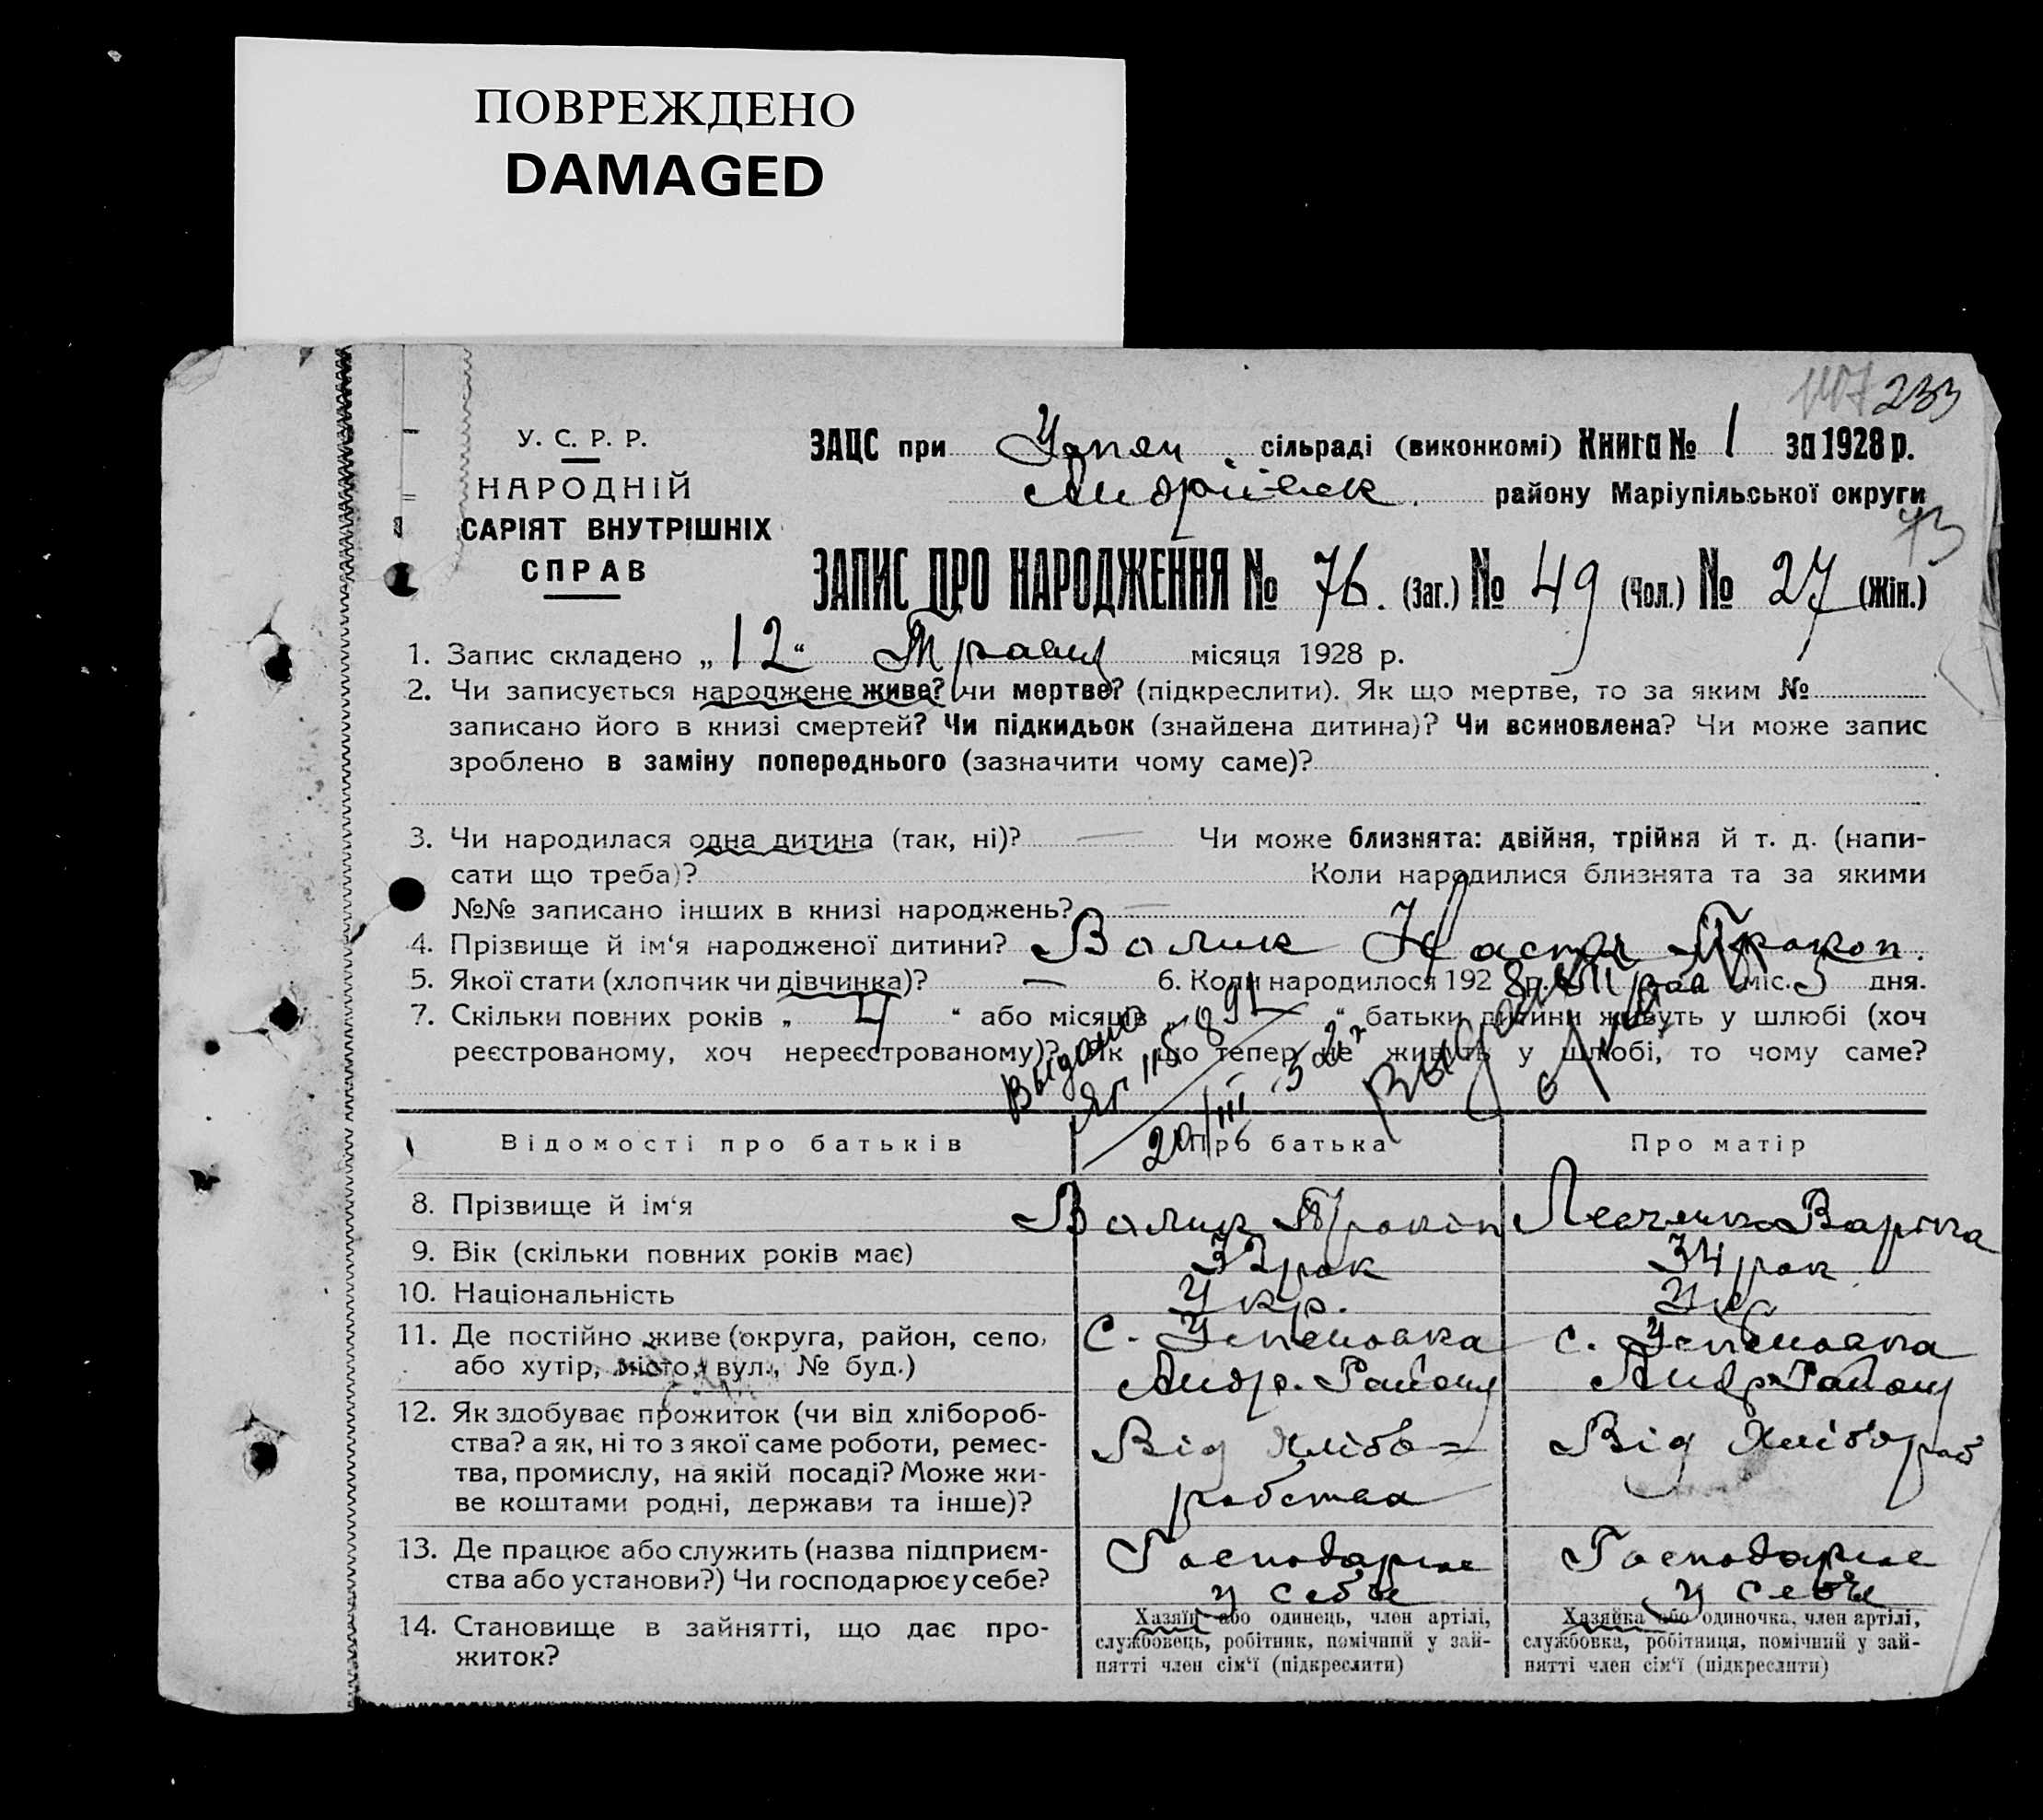 ПОВРЕЖДЕНО
DAMAGED
233
У. С. Р. Р.
НАРОДНІЙ
САРІЯТ ВНУТРІШНІХ
СПРАВ
ЗАЦС при сільраді (виконкомі) Книга № 1 за 1928 р.
Андріївск. району Маріупільської округи
73
ЗАПИС ПРО НАРОДЖЕННЯ № 76. (Заг.) № 49 (Чол.) № 27 (Жін.)
1. Запис складено „12“ Травня місяця 1928 р.
2. Чи записується народжене живе? чи мертве? (підкреслити). Як що мертве, то за яким №
записано його в книзі смертей? Чи підкидьок (знайдена дитина)? Чи всиновлена? Чи може запис
зроблено в заміну попереднього (зазначити чому саме)?
3. Чи народилася одна дитина (так, ні)? — Чи може близнята: двійня, трійня й т. д. (напи-
сати що треба)? Коли народилися близнята та за якими
№№ записано інших в книзі народжень? —
4. Прізвище й ім‘я народженої дитини? Волик Настя Прокоп.
5. Якої стати (хлопчик чи дівчинка)? — 6. Коли народилося 1928 р. міс. 5 дня.
7. Скільки повних років „ 4 “ або місяців „ “ батьки дитини живуть у шлюбі (хоч
реєстрованому, хоч нереєстрованому)? Як що тепер не живуть у шлюбі, то чому саме?
Выдано
20/III
Відомості про батьків Про батька Про матір
8. Прізвище й ім‘я Волик Прокіп Варка
9. Вік (скільки повних років має) 32 рок 34 рок
10. Національність Укр. Укр
11. Де постійно живе (округа, район, село, С. Успеновка с. Успеновка
або хутір, місто, вул., № буд.) Андр. Району Андр Району
12. Як здобуває прожиток (чи від хлібороб-
ства? а як, ні то з якої саме роботи, ремес- Від хлібо= Від хлібороб
тва, промислу, на якій посаді? Може жи- робства
ве коштами родні, держави та інше)?
13. Де працює або служить (назва підприєм- Господарює Господарює
ства або установи?) Чи господарює у себе? у себе у себе
14. Становище в зайнятті, що дає про-
житок?
Хазяїн або одинець, член артілі,
службовець, робітник, помічний у зай-
нятті член сім‘ї (підкреслити)
Хазяйка або одиночка, член артілі,
службовка, робітниця, помічний у зай-
нятті член сім‘ї (підкреслити)